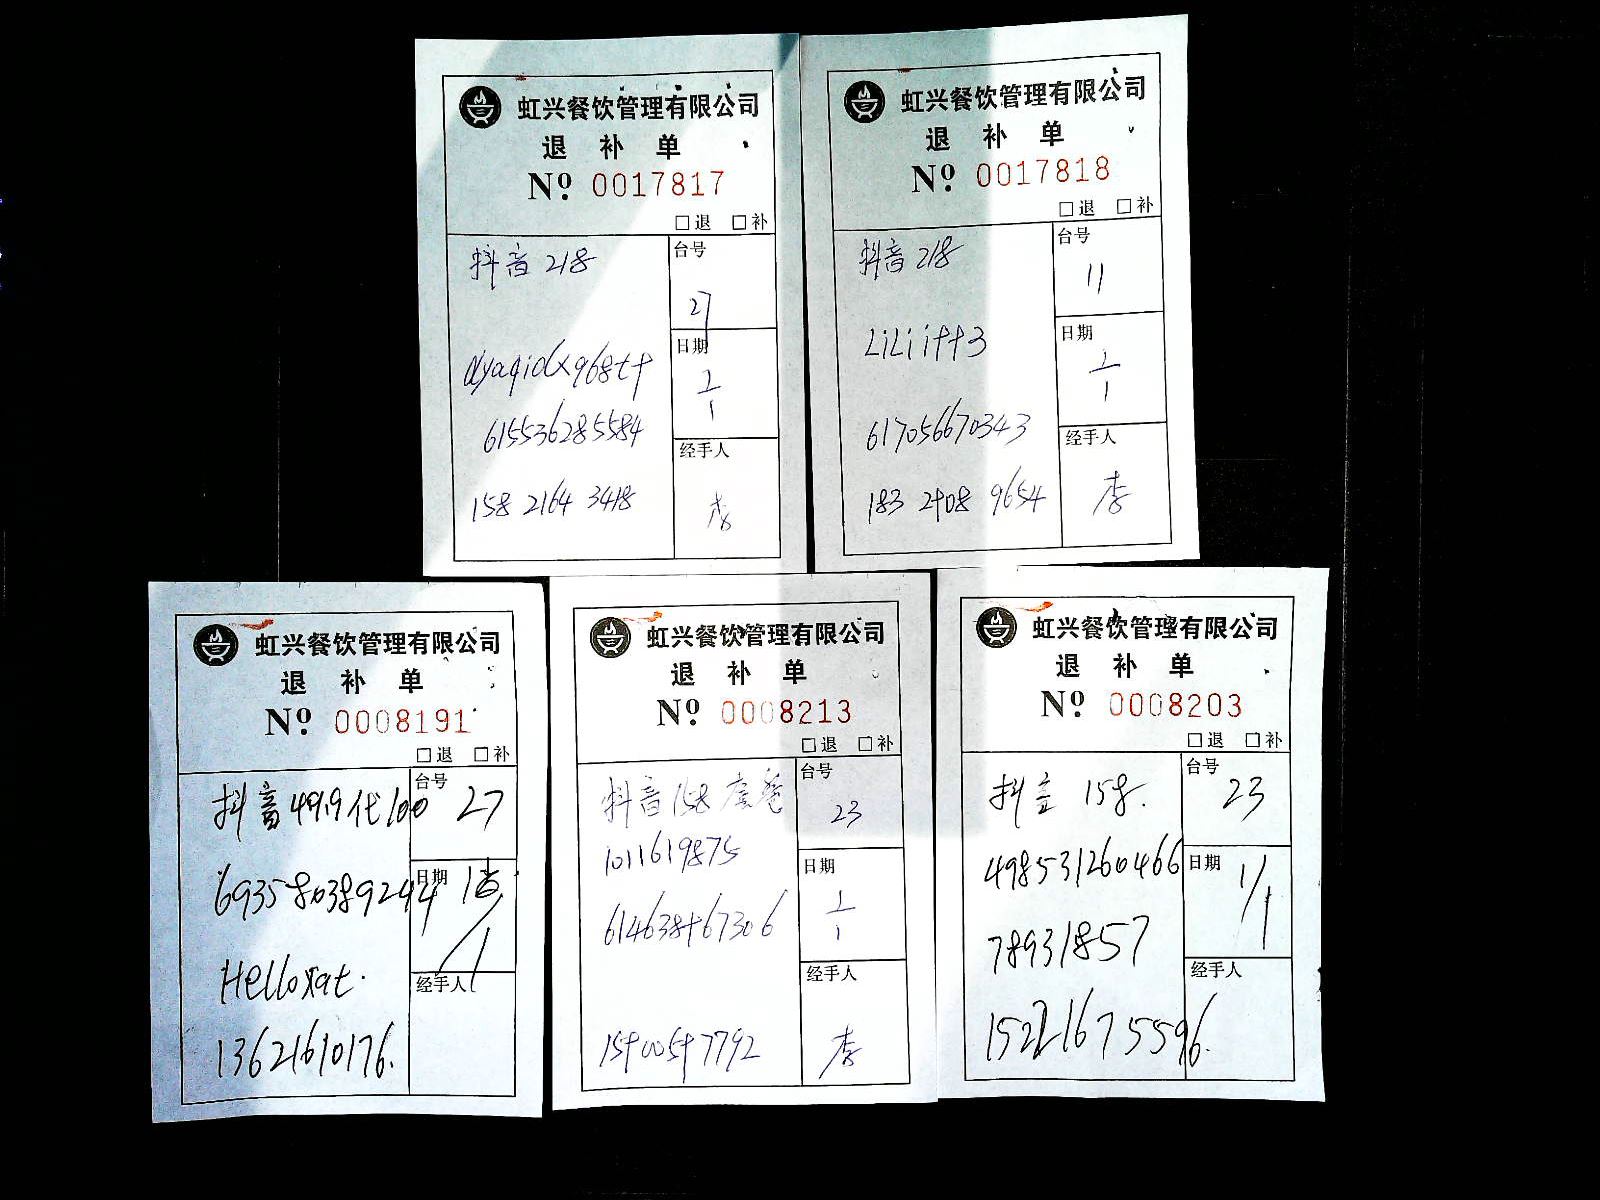 虹兴餐饮管理有限公司
退 补 单
Nº 0017817
□退 □补
抖音 218
台号
27
日期
2/1
615536285584
经手人
158 2164 3418
李
虹兴餐饮管理有限公司
退 补 单
Nº 0017818
□退 □补
抖音 218
台号
11
LiLiitt3
日期
2/1
617056670343
经手人
183 2908 9654
李
虹兴餐饮管理有限公司
退 补 单
Nº 0008191
□退 □补
抖音 49.9代100
台号
27
693580389244
日期
经手人
13621610176.
虹兴餐饮管理有限公司
退 补 单
Nº 0008213
□退 □补
抖音 158 套餐
台号
23
1011619875
日期
2/1
614638967306
经手人
15900597792
李
虹兴餐饮管理有限公司
退 补 单
Nº 0008203
□退 □补
抖音 158.
台号
23
498531260466
日期
1/1
78931857
经手人
15221675596.